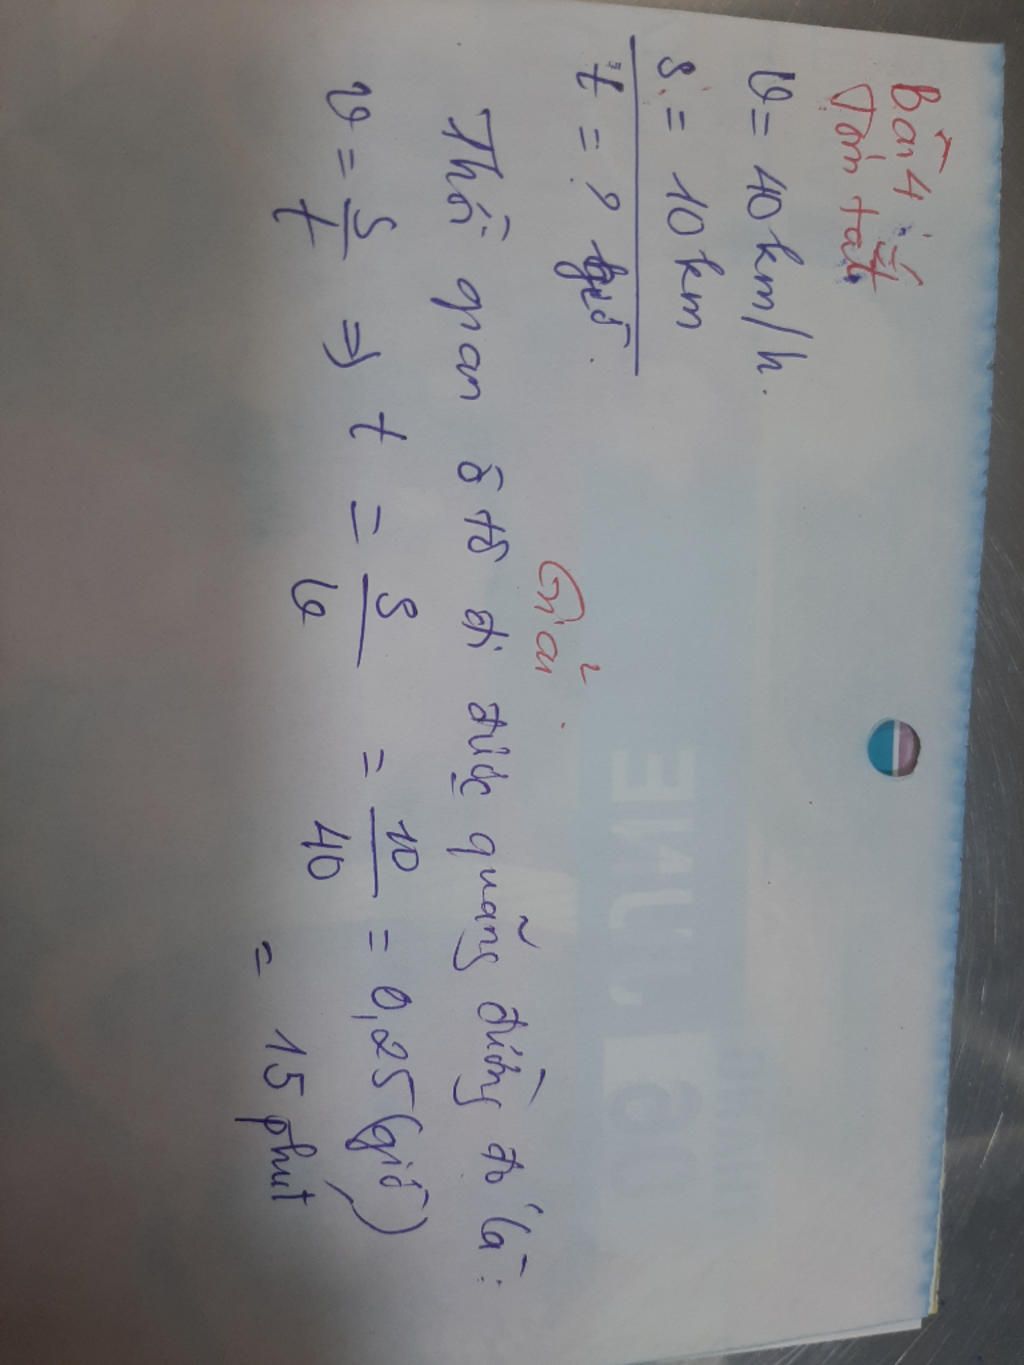 Bài 4:
Tóm tắt
v = 40km/h.
s = 10km
t = ? giờ.
Giải.
Thời gian ô tô đi được quãng đường đó là:
v = s/t ⇒ t = s/v = 10/40 = 0,25 (giờ)
= 15 phút